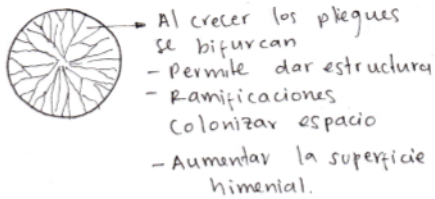 Al crecer los pliegues
se bifurcan
- Permite dar estructura
- Ramificaciones
Colonizar espacio
- Aumentar la superficie
himenial.